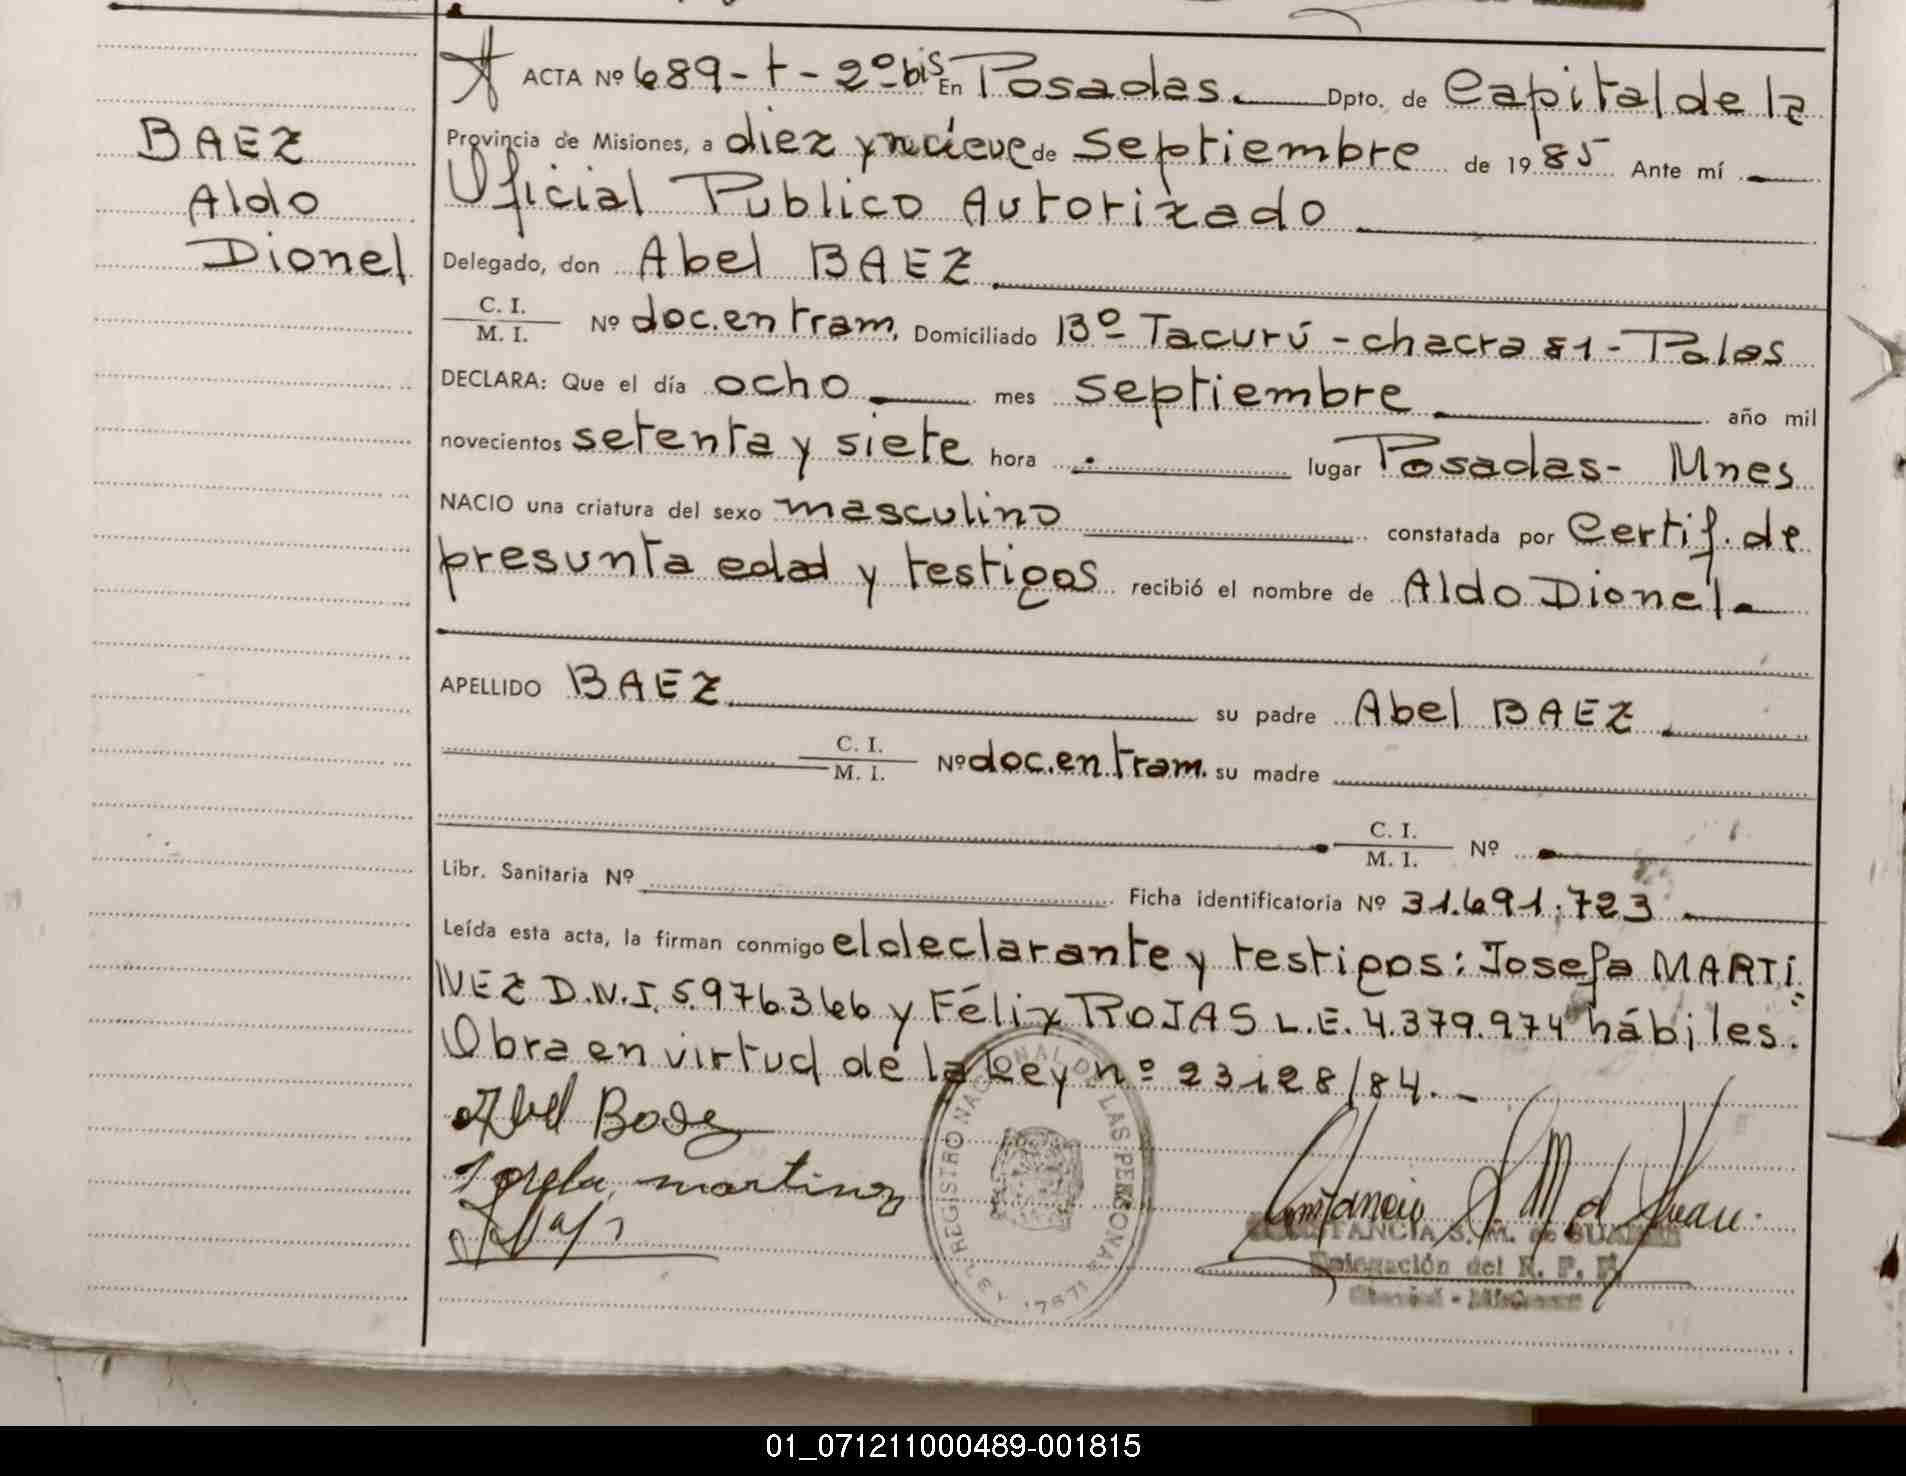 BAEZ
Aldo
Dionel
ACTA Nº 689-t-2º bis En Posadas. Dpto. de Capital de la
Provincia de Misiones, a diez y nueve de Septiembre de 1985 Ante mí
Oficial Publico Autorizado
Delegado, don Abel BAEZ
C. I.
M. I. Nº doc.en tram. Domiciliado Bº Tacurú - chacra 81 - Pdas
DECLARA: Que el día ocho mes septiembre año mil
novecientos setenta y siete hora lugar Posadas - Mnes
NACIO una criatura del sexo masculino constatada por Certif. de
presunta edad y testigos recibió el nombre de Aldo Dionel
APELLIDO BAEZ su padre Abel BAEZ
C. I.
M. I. Nº doc.en tram. su madre
C. I.
M. I. Nº
Libr. Sanitaria Nº Ficha identificatoria Nº 31.691.723
Leída esta acta, la firman conmigo el declarante y testigos: Josefa MARTI
NEZ D.N.I. 5.976.366 y Félix ROJAS L.E. 4.379.974 hábiles.
Obra en virtud de la Ley nº 23128/84.-
Abel Baez
Josefa martinez
REGISTRO NACIONAL DE LAS PERSONAS
LEY 17671
CONSTANCIA S. M. de
Delegación del R. P. P.
01_071211000489-001815